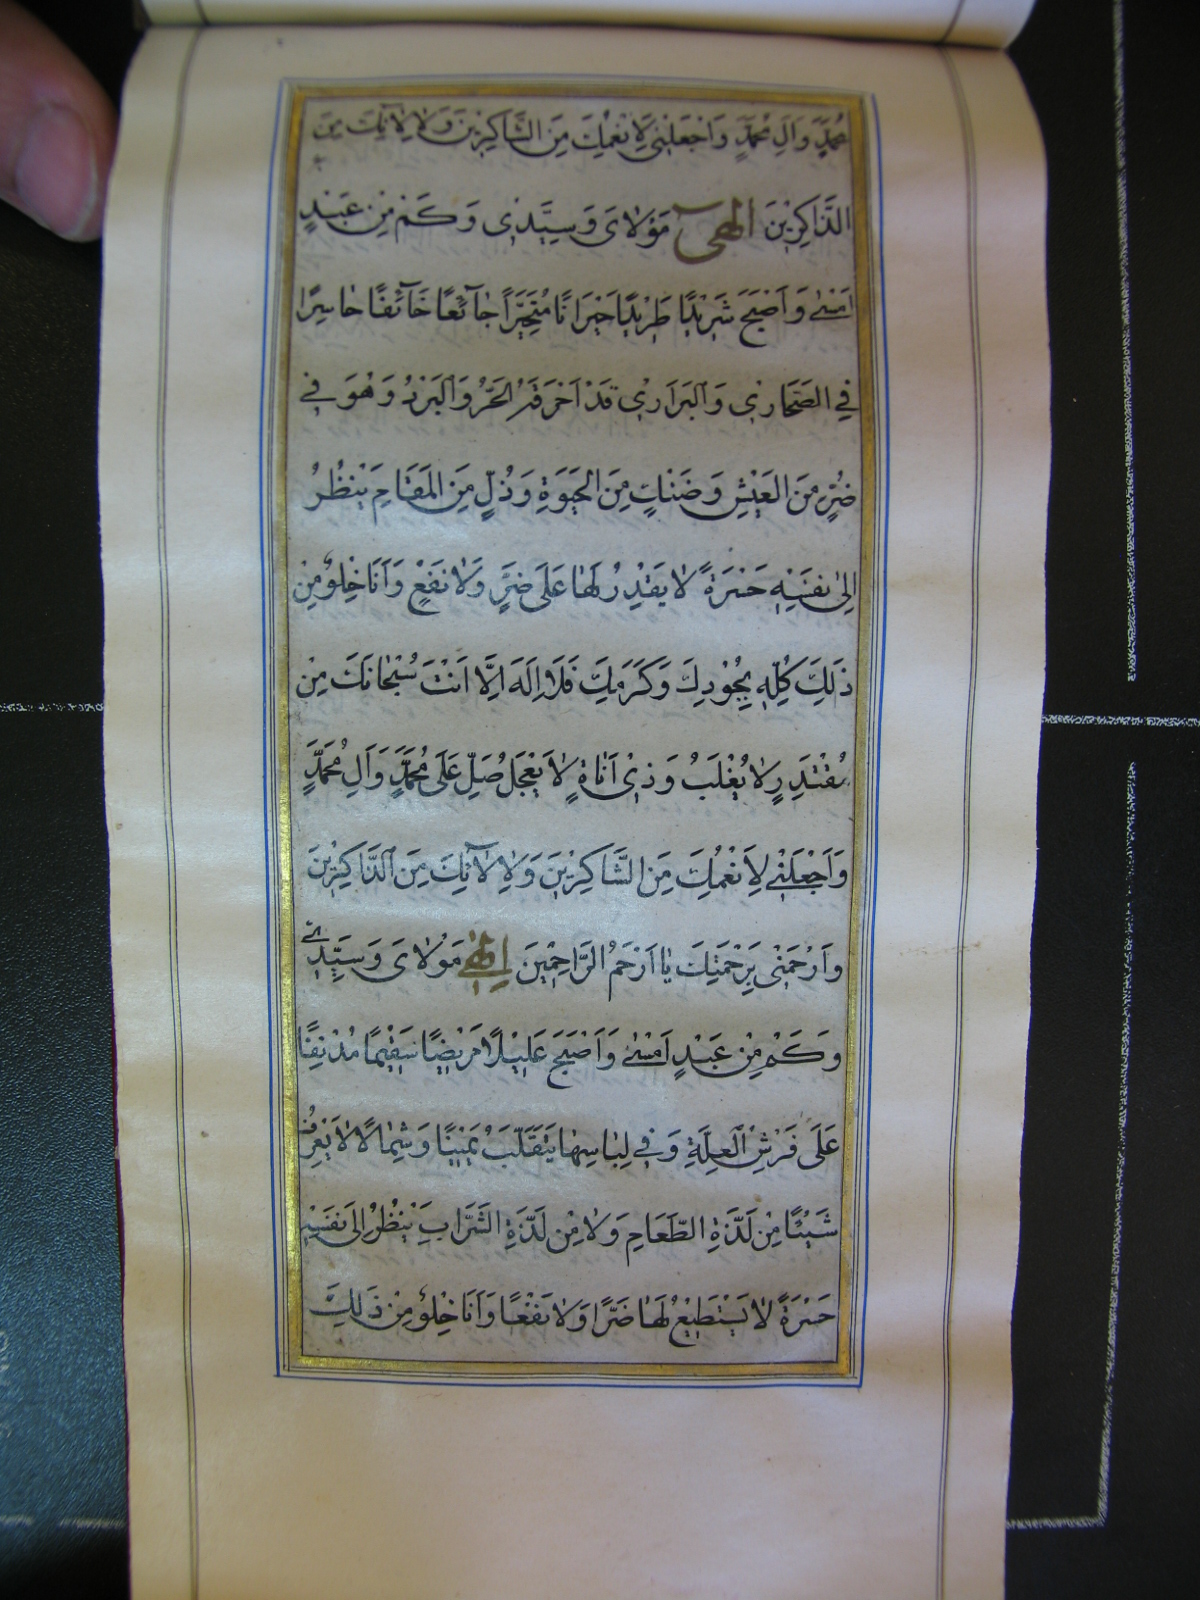 مُحَمَّدٍ وَآلِ مُحَمَّدٍ وَاجْعَلْنِي لِأَنْعُمِكَ مِنَ الشَّاكِرِينَ وَلِآلَائِكَ مِنَ
الذَّاكِرِينَ اِلٰهِی مَوْلَایَ وَسَيِّدِی وَكَمْ مِنْ عَبْدٍ
اَمْسٰی وَاَصْبَحَ شَرِيْدًا طَرِيْدًا حَيْرَانًا مُتَحَيِّرًا جَآئِعًا خَآئِفًا خَاسِرًا
فِي الصَّحَارِی وَالْبَرَارِی قَدْ اَحْرَقَهُ الْحَرُّ وَالْبَرْدُ وَهُوَ فِي
ضُرٍّ مِنَ الْعَيْشِ وَضَنْكٍ مِنَ الْحَيٰوةِ وَذُلٍّ مِنَ الْمَقَامِ يَنْظُرُ
اِلٰی نَفْسِهِ حَسْرَةً لَا يَقْدِرُ لَهَا عَلَی ضَرٍّ وَلَا نَفْعٍ وَاَنَا خِلْوٌ مِنْ
ذَلِكَ كُلِّهِ بِجُوْدِكَ وَكَرَمِكَ فَلَا اِلَهَ اِلَّا اَنْتَ سُبْحَانَكَ مِنْ
مُقْتَدِرٍ لَا يُغْلَبُ وَذِی اَنَاةٍ لَا يَعْجَلُ صَلِّ عَلَی مُحَمَّدٍ وَآلِ مُحَمَّدٍ
وَاجْعَلْنِي لِاَنْعُمِكَ مِنَ الشَّاكِرِيْنَ وَلِآلَائِكَ مِنَ الذَّاكِرِيْنَ
وَارْحَمْنِی بِرَحْمَتِكَ يَا اَرْحَمَ الرَّاحِمِيْنَ اِلٰهِی مَوْلَایَ وَسَيِّدِی
وَكَمْ مِنْ عَبْدٍ اَمْسٰی وَاَصْبَحَ عَلِيْلًا مَرِيْضًا سَقِيْمًا مُدْنِفًا
عَلَی فَرْشِ الْعِلَّةِ وَفِي لِبَاسِهَا يَتَقَلَّبُ يَمِيْنًا وَشِمَالًا لَا يَعْرِفُ
شَيْئًا مِنْ لَذَّةِ الطَّعَامِ وَلَا مِنْ لَذَّةِ الشَّرَابِ يَنْظُرُ اِلَی نَفْسِهِ
حَسْرَةً لَا يَسْتَطِيْعُ لَهَا ضَرًّا وَلَا نَفْعًا وَاَنَا خِلْوٌ مِنْ ذَلِكَ